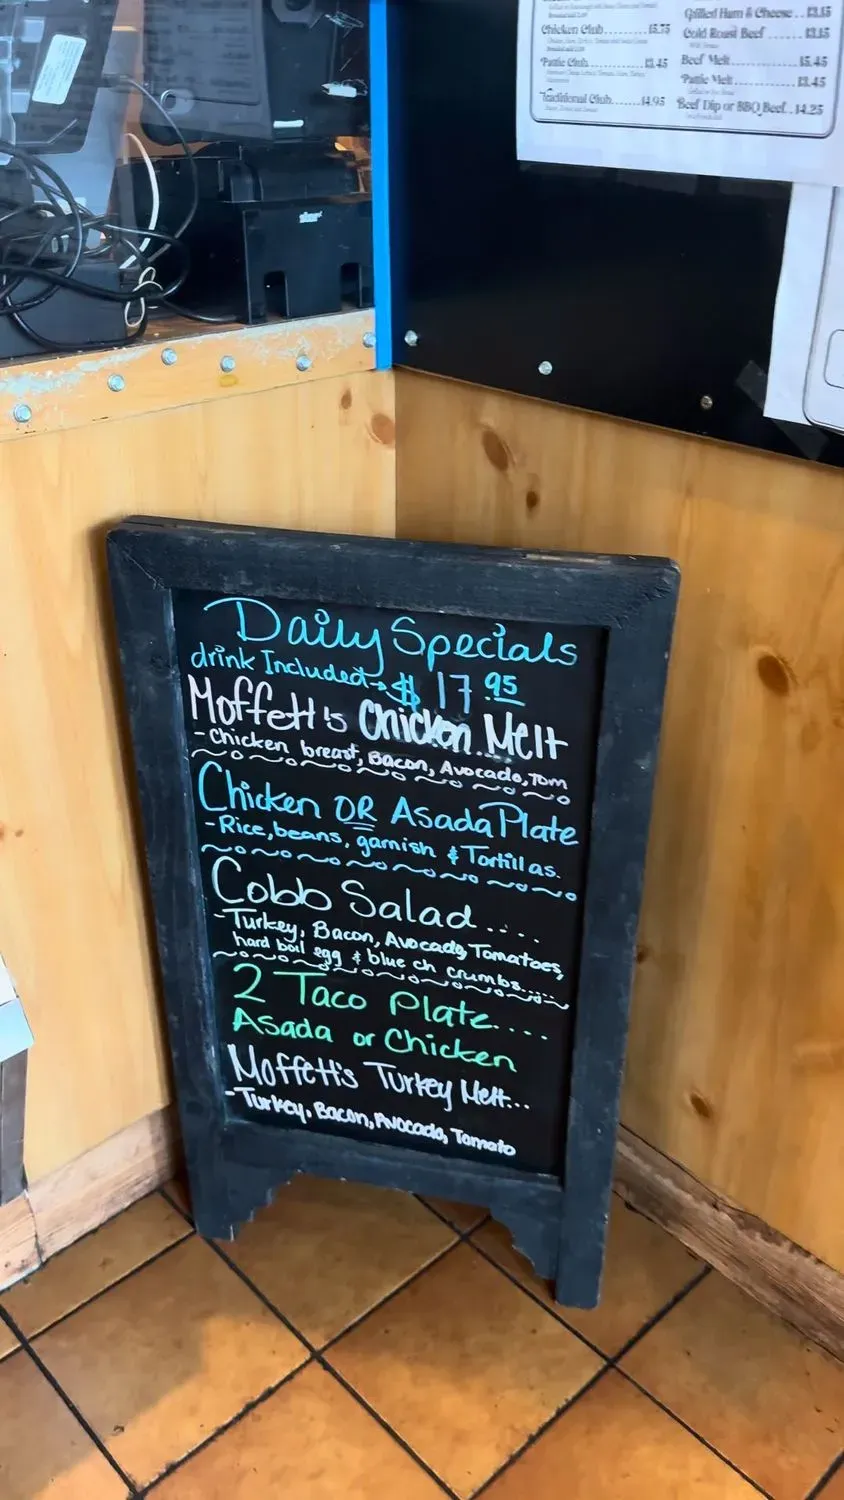 Chicken Club.......15.75
Pattie Club............13.45
Traditional Club......14.95
Grilled Ham & Cheese...13.15
Cold Roast Beef............13.15
Beef Melt.....................15.45
Pattie Melt....................13.45
Beef Dip or BBQ Beef..14.25
star
Daily Specials
drink Included→ $ 17 95
Moffett's Chicken Melt
-Chicken breast, Bacon, Avocado, Tom
Chicken OR Asada Plate
-Rice, beans, garnish & Tortillas.
Cobb Salad....
-Turkey, Bacon, Avocado, Tomatoes,
hard boil egg & blue ch crumbs.....
2 Taco Plate....
Asada or Chicken
Moffett's Turkey Melt...
-Turkey, Bacon, Avocado, Tomato